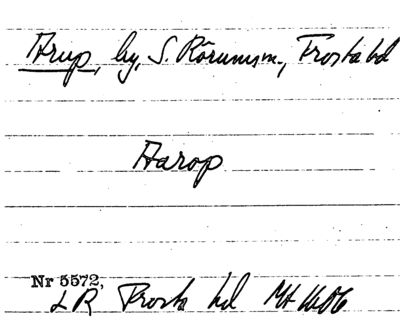 Arup, by, S. Rörums sn., Frosta hd
Aarop
Nr 5572,
LR Frosta hd Mt 1606